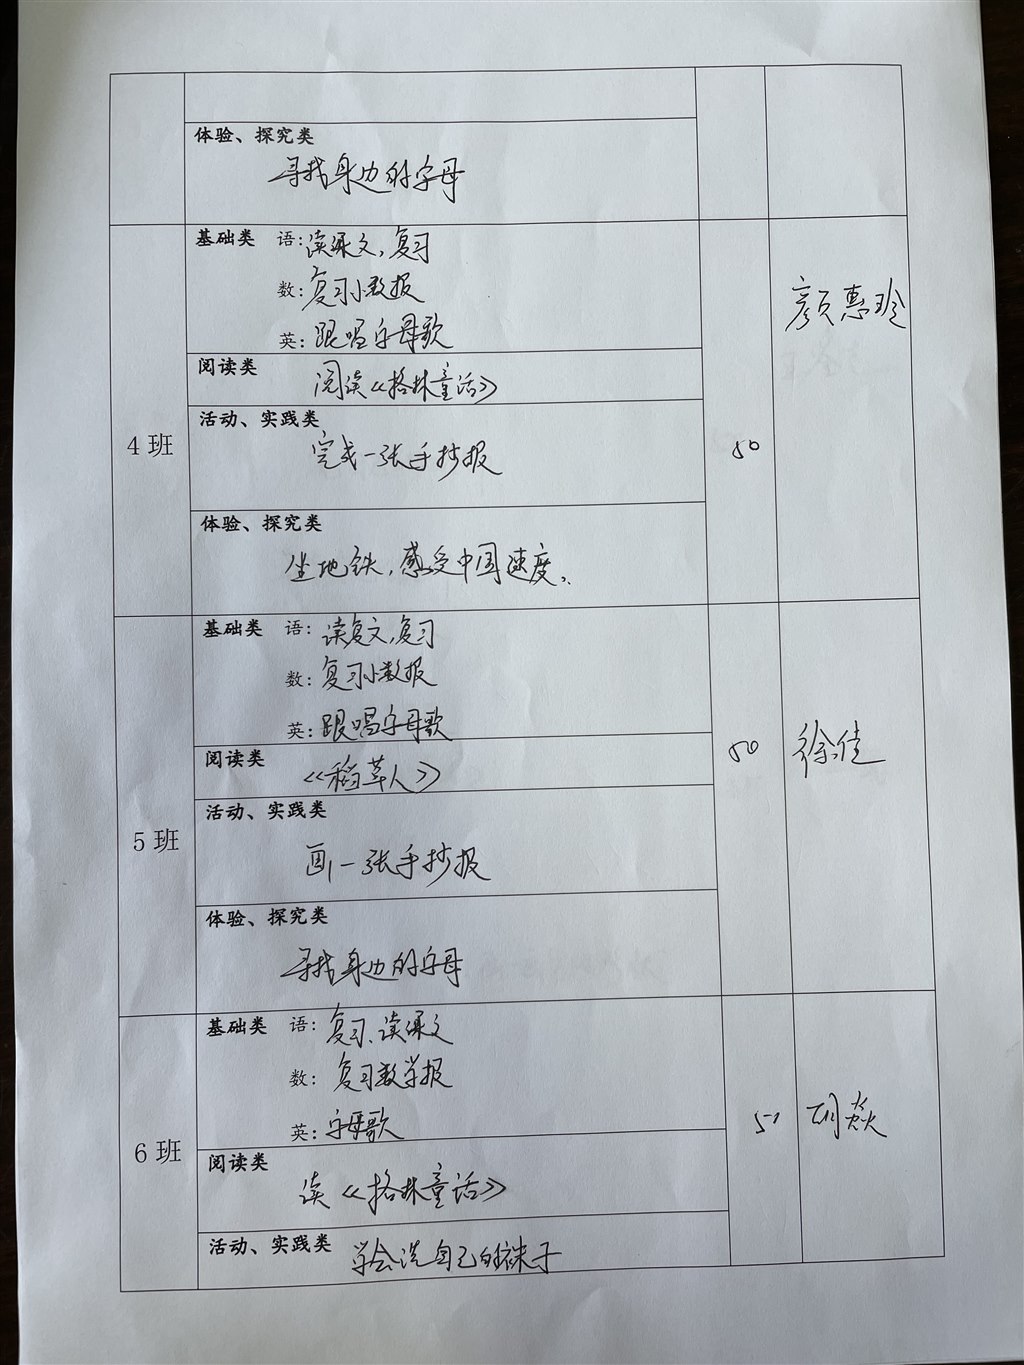 体验、探究类
寻找身边的字母
4班
基础类 语:读课文,复习
数:复习小数报
英:跟唱字母歌
阅读类
阅读《格林童话》
活动、实践类
完成一张手抄报
体验、探究类
坐地铁,感受中国速度。
50
颜惠玲
5班
基础类 语:读复文,复习
数:复习小数报
英:跟唱字母歌
阅读类
《稻草人》
活动、实践类
画一张手抄报
体验、探究类
寻找身边的字母
50
徐佳
6班
基础类 语:复习、读课文
数:复习数学报
英:字母歌
阅读类
读《格林童话》
活动、实践类 学会洗自己的袜子
51
胡焱